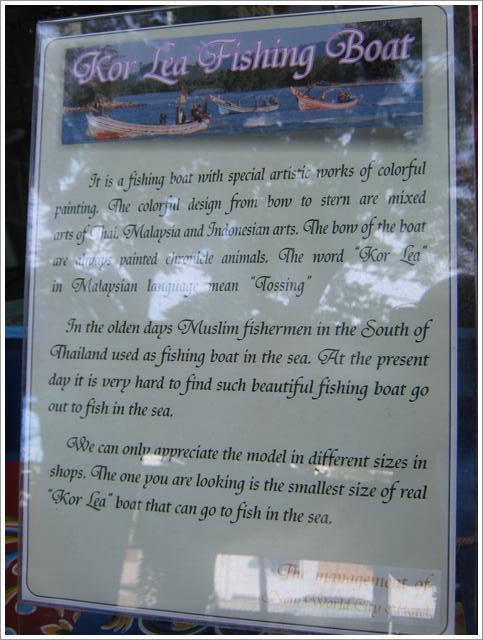 Kor Lea Fishing Boat
It is a fishing boat with special artistic works of colorful
painting. The colorful design from bow to stern are mixed
arts of Thai, Malaysia and Indonesian arts. The bow of the boat
are always painted chronicle animals. The word "Kor Lea"
in Malaysian language mean "Tossing"
In the olden days Muslim fishermen in the South of
Thailand used as fishing boat in the sea. At the present
day it is very hard to find such beautiful fishing boat go
out to fish in the sea.
We can only appreciate the model in different sizes in
shops. The one you are looking is the smallest size of real
"Kor Lea" boat that can go to fish in the sea.
The management of
World City